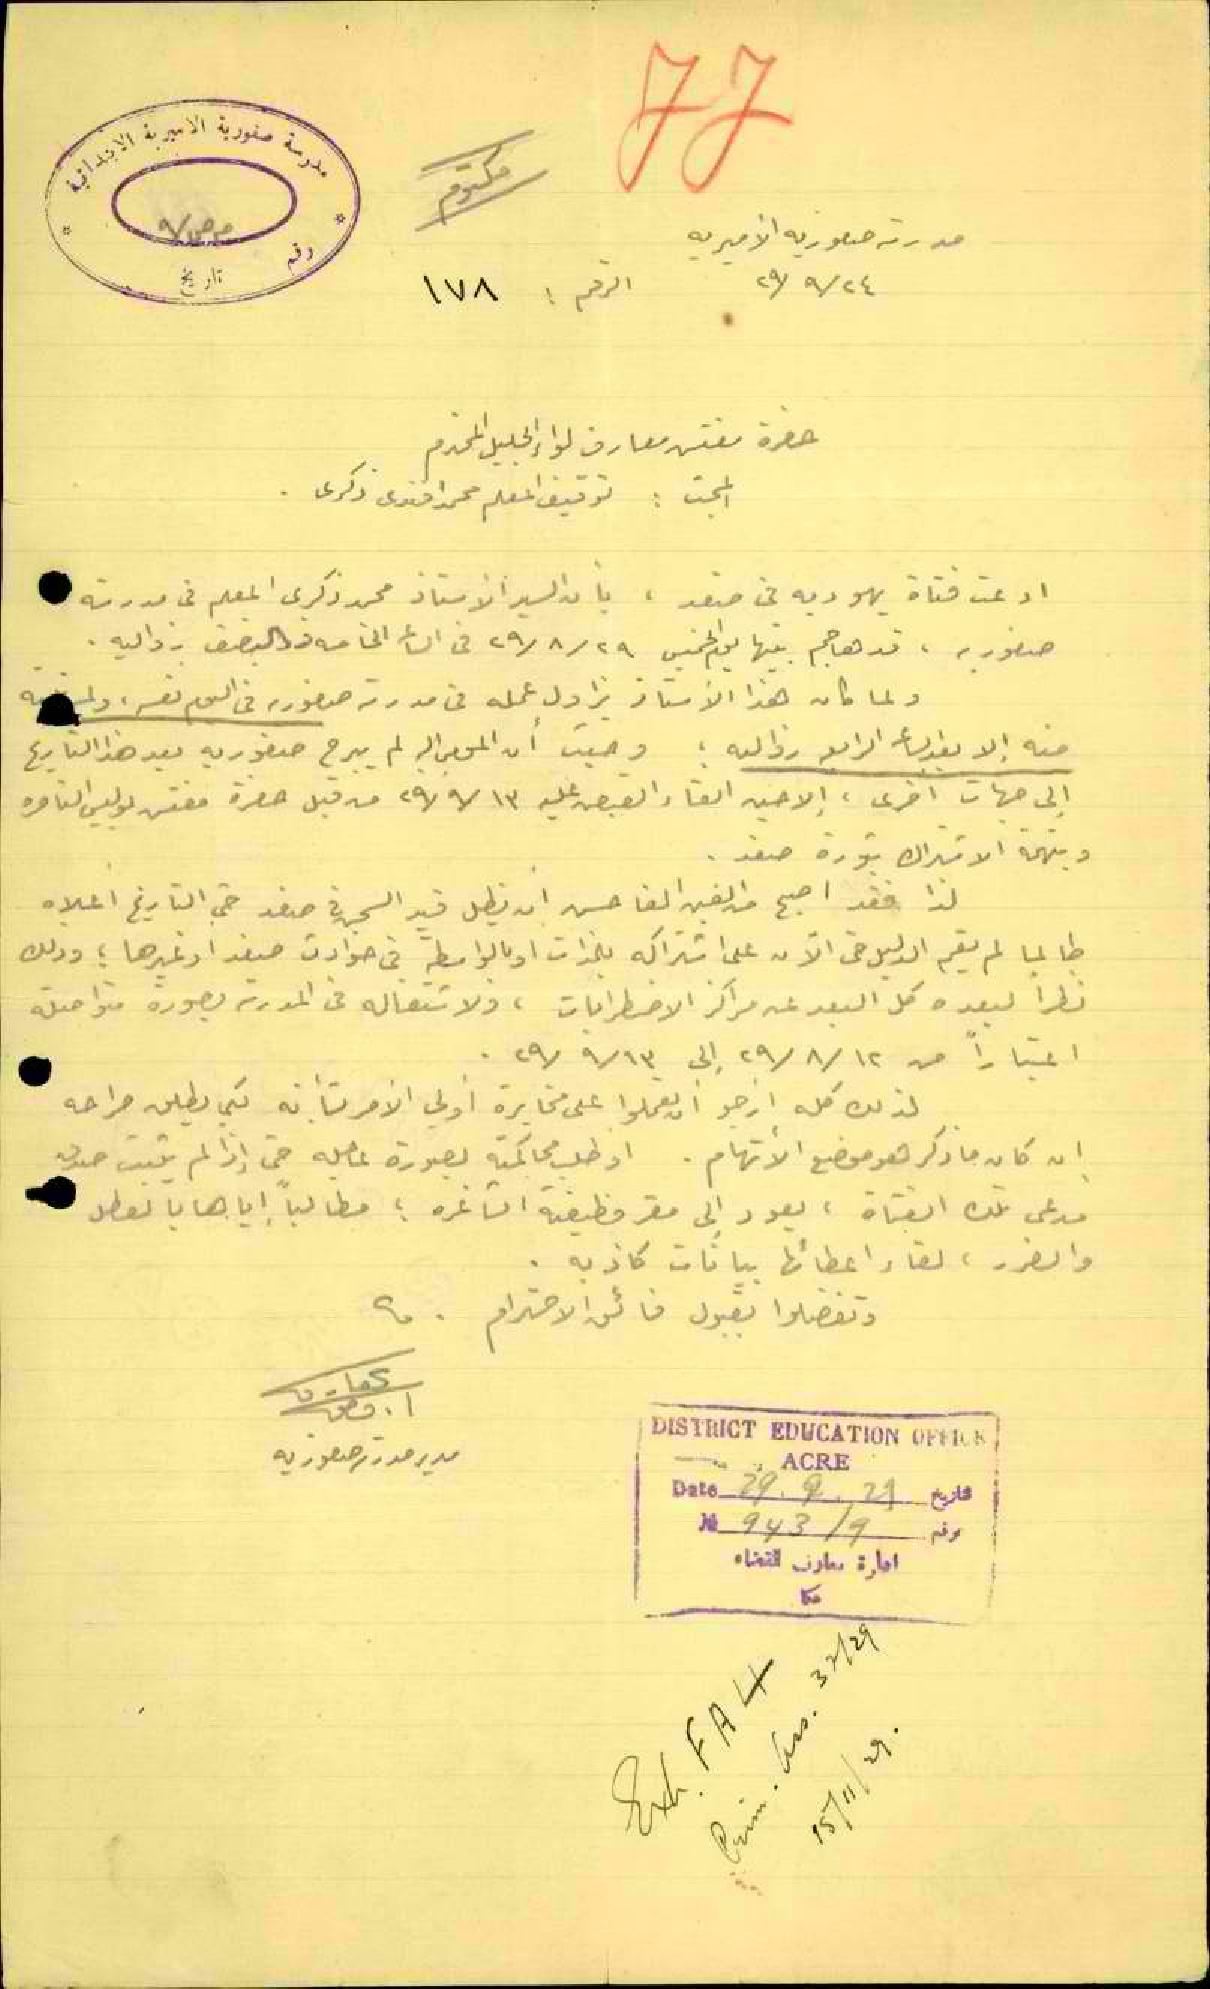 77
مدرسة صفورية الاميرية الابتدائية
رقم
م ص/٩
تاريخ
مكتوم
مدرسة صفوريه الأميريه
٢٤/٩/٢٩
الرقم : ١٧٨
حضرة مفتش معارف لواء الجليل المحترم
المبحث : توقيف المعلم محمد افندى زكرى .
ادعت فتاة يهوديه في صفد ، بأن السيد الأستاذ محمد زكرى المعلم في مدرسة
صفوريه ، قد هاجم بيتها يوم الخميس ٢٩/٨/٢٩ في الساعه الخامسه والنصف زواليه .
ولما كان هذا الأستاذ يزاول عمله في مدرسة صفوريه في اليوم نفسه ، ولم
منه إلا بعد الساعه الرابعه زواليه ؛ وحيث أن المومى اليه لم يبرح صفوريه بعد هذا التاريخ
إلى جهات أخرى ، إلا حين القاء القبض عليه ١٣/٩/٢٩ من قبل حضرة مفتش بوليس الناصره
وبتهمة الاشتراك بثورة صفد .
لذا فقد اصبح من الغبن الفاحش أن يظل قيد السجن في صفد حتى التاريخ أعلاه
طالما لم يقم الدليل حتى الآن على اشتراكه بالذات او بالواسطة في حوادث صفد او غيرها ؛ وذلك
نظراً لبعده كل البعد عن مراكز الاضطرابات ، ولاشتغاله في المدرسة بصورة متواصلة
اعتباراً من ١٢/٨/٢٩ إلى ١٣/٩/٢٩ .
لذلك كله أرجو أن تعملوا على مخابرة أولي الأمر بشأنه لكي يطلق سراحه
إن كان ما ذكر هو موضع الأتهام . او طلب محاكمته بصورة عاجله حتى إذا لم يثبت صدق
مدعى تلك الفتاة ، يعود إلى مقر وظيفته الشاغره ؛ مطالباً إياها بالعطل
والضرر ، لقاء اعطائها بيانات كاذبه .
وتفضلوا بقبول فائق الاحترام .
مدير مدرسة صفوريه
DISTRICT EDUCATION OFFICE
ACRE
Date 29.9.29 تاريخ
№ 943/9 رقم
ادارة معارف القضاء
عكا
Exh. FA4
Crim. Ass. 37/29
15/11/29.